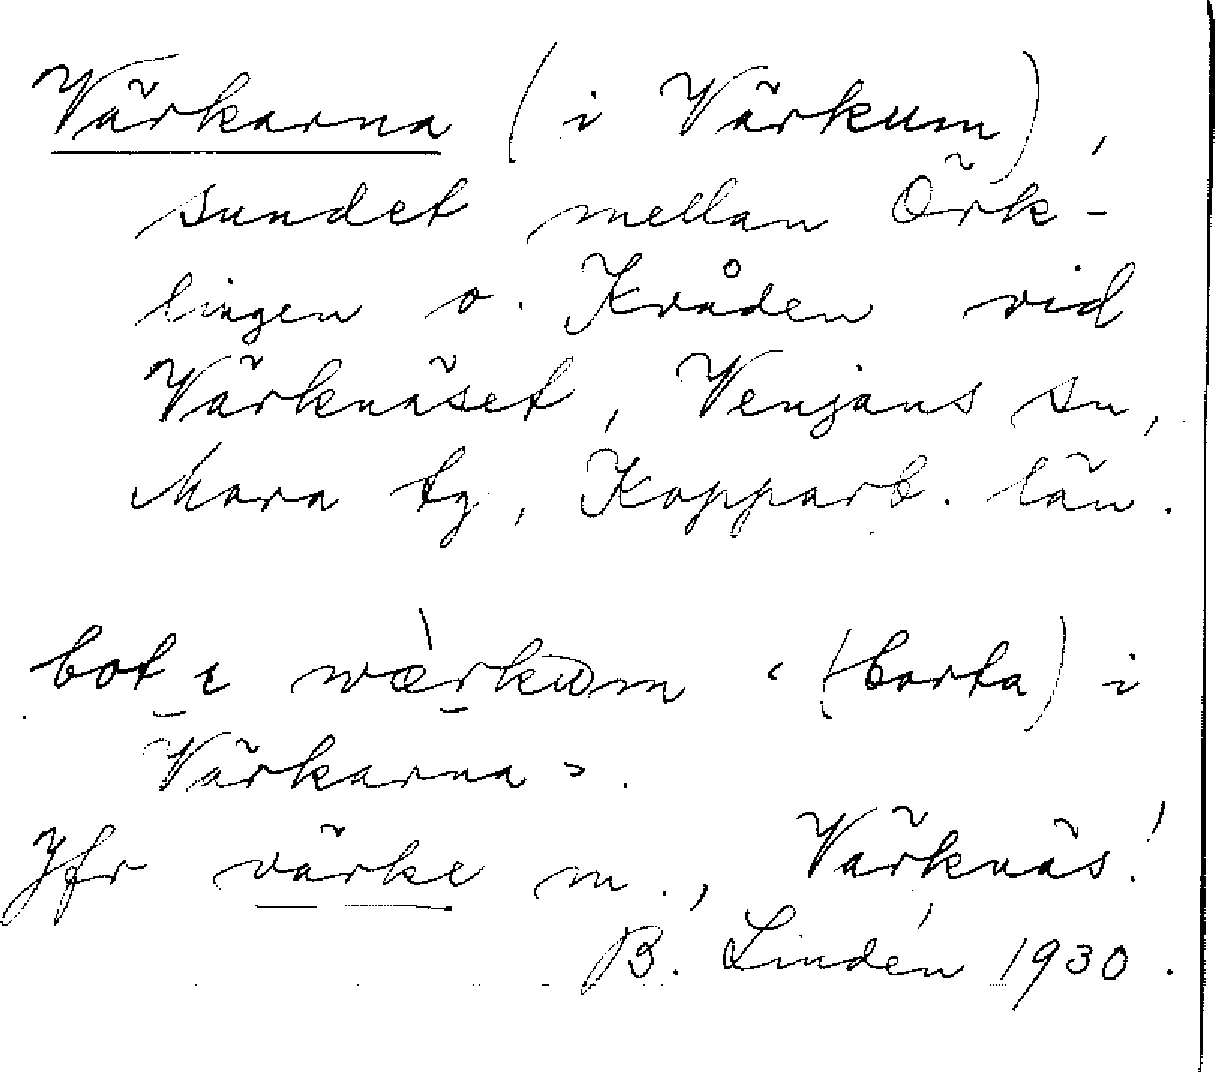 Värkarna (i Värkum),
sundet mellan Örk-
lingen o. Kråden vid
Värknäset, Venjans sn,
Mora tg, Kopparb. län.
bot ɩ wàrkωm ‹(borta) i
Värkarna›.
Jfr värke m., Värknäs!
B. Lindén 1930.